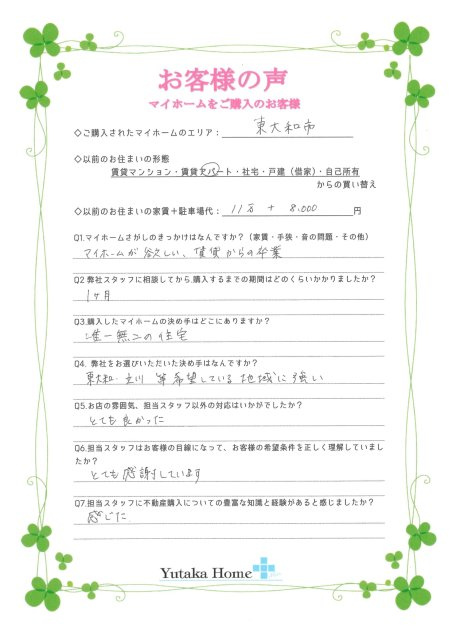 お客様の声
マイホームをご購入のお客様
◇ご購入されたマイホームのエリア： 東大和市
◇以前のお住まいの形態
賃貸マンション・賃貸アパート・社宅・戸建（借家）・自己所有
からの買い替え
◇以前のお住まいの家賃＋駐車場代： 11万 + 8,000 円
Q1.マイホームさがしのきっかけはなんですか？（家賃・手狭・音の問題・その他）
マイホームが欲しい、賃貸からの卒業
Q2.弊社スタッフに相談してから、購入するまでの期間はどのくらいかかりましたか？
1ヶ月
Q3.購入したマイホームの決め手はどこにありますか？
唯一無二の住宅
Q4. 弊社をお選びいただいた決め手はなんですか？
東大和・立川 等希望している地域に強い
Q5.お店の雰囲気、担当スタッフ以外の対応はいかがでしたか？
とても良かった
Q6.担当スタッフはお客様の目線になって、お客様の希望条件を正しく理解していまし
たか？
とても感謝しています
Q7.担当スタッフに不動産購入についての豊富な知識と経験があると感じましたか？
感じた
Yutaka Home